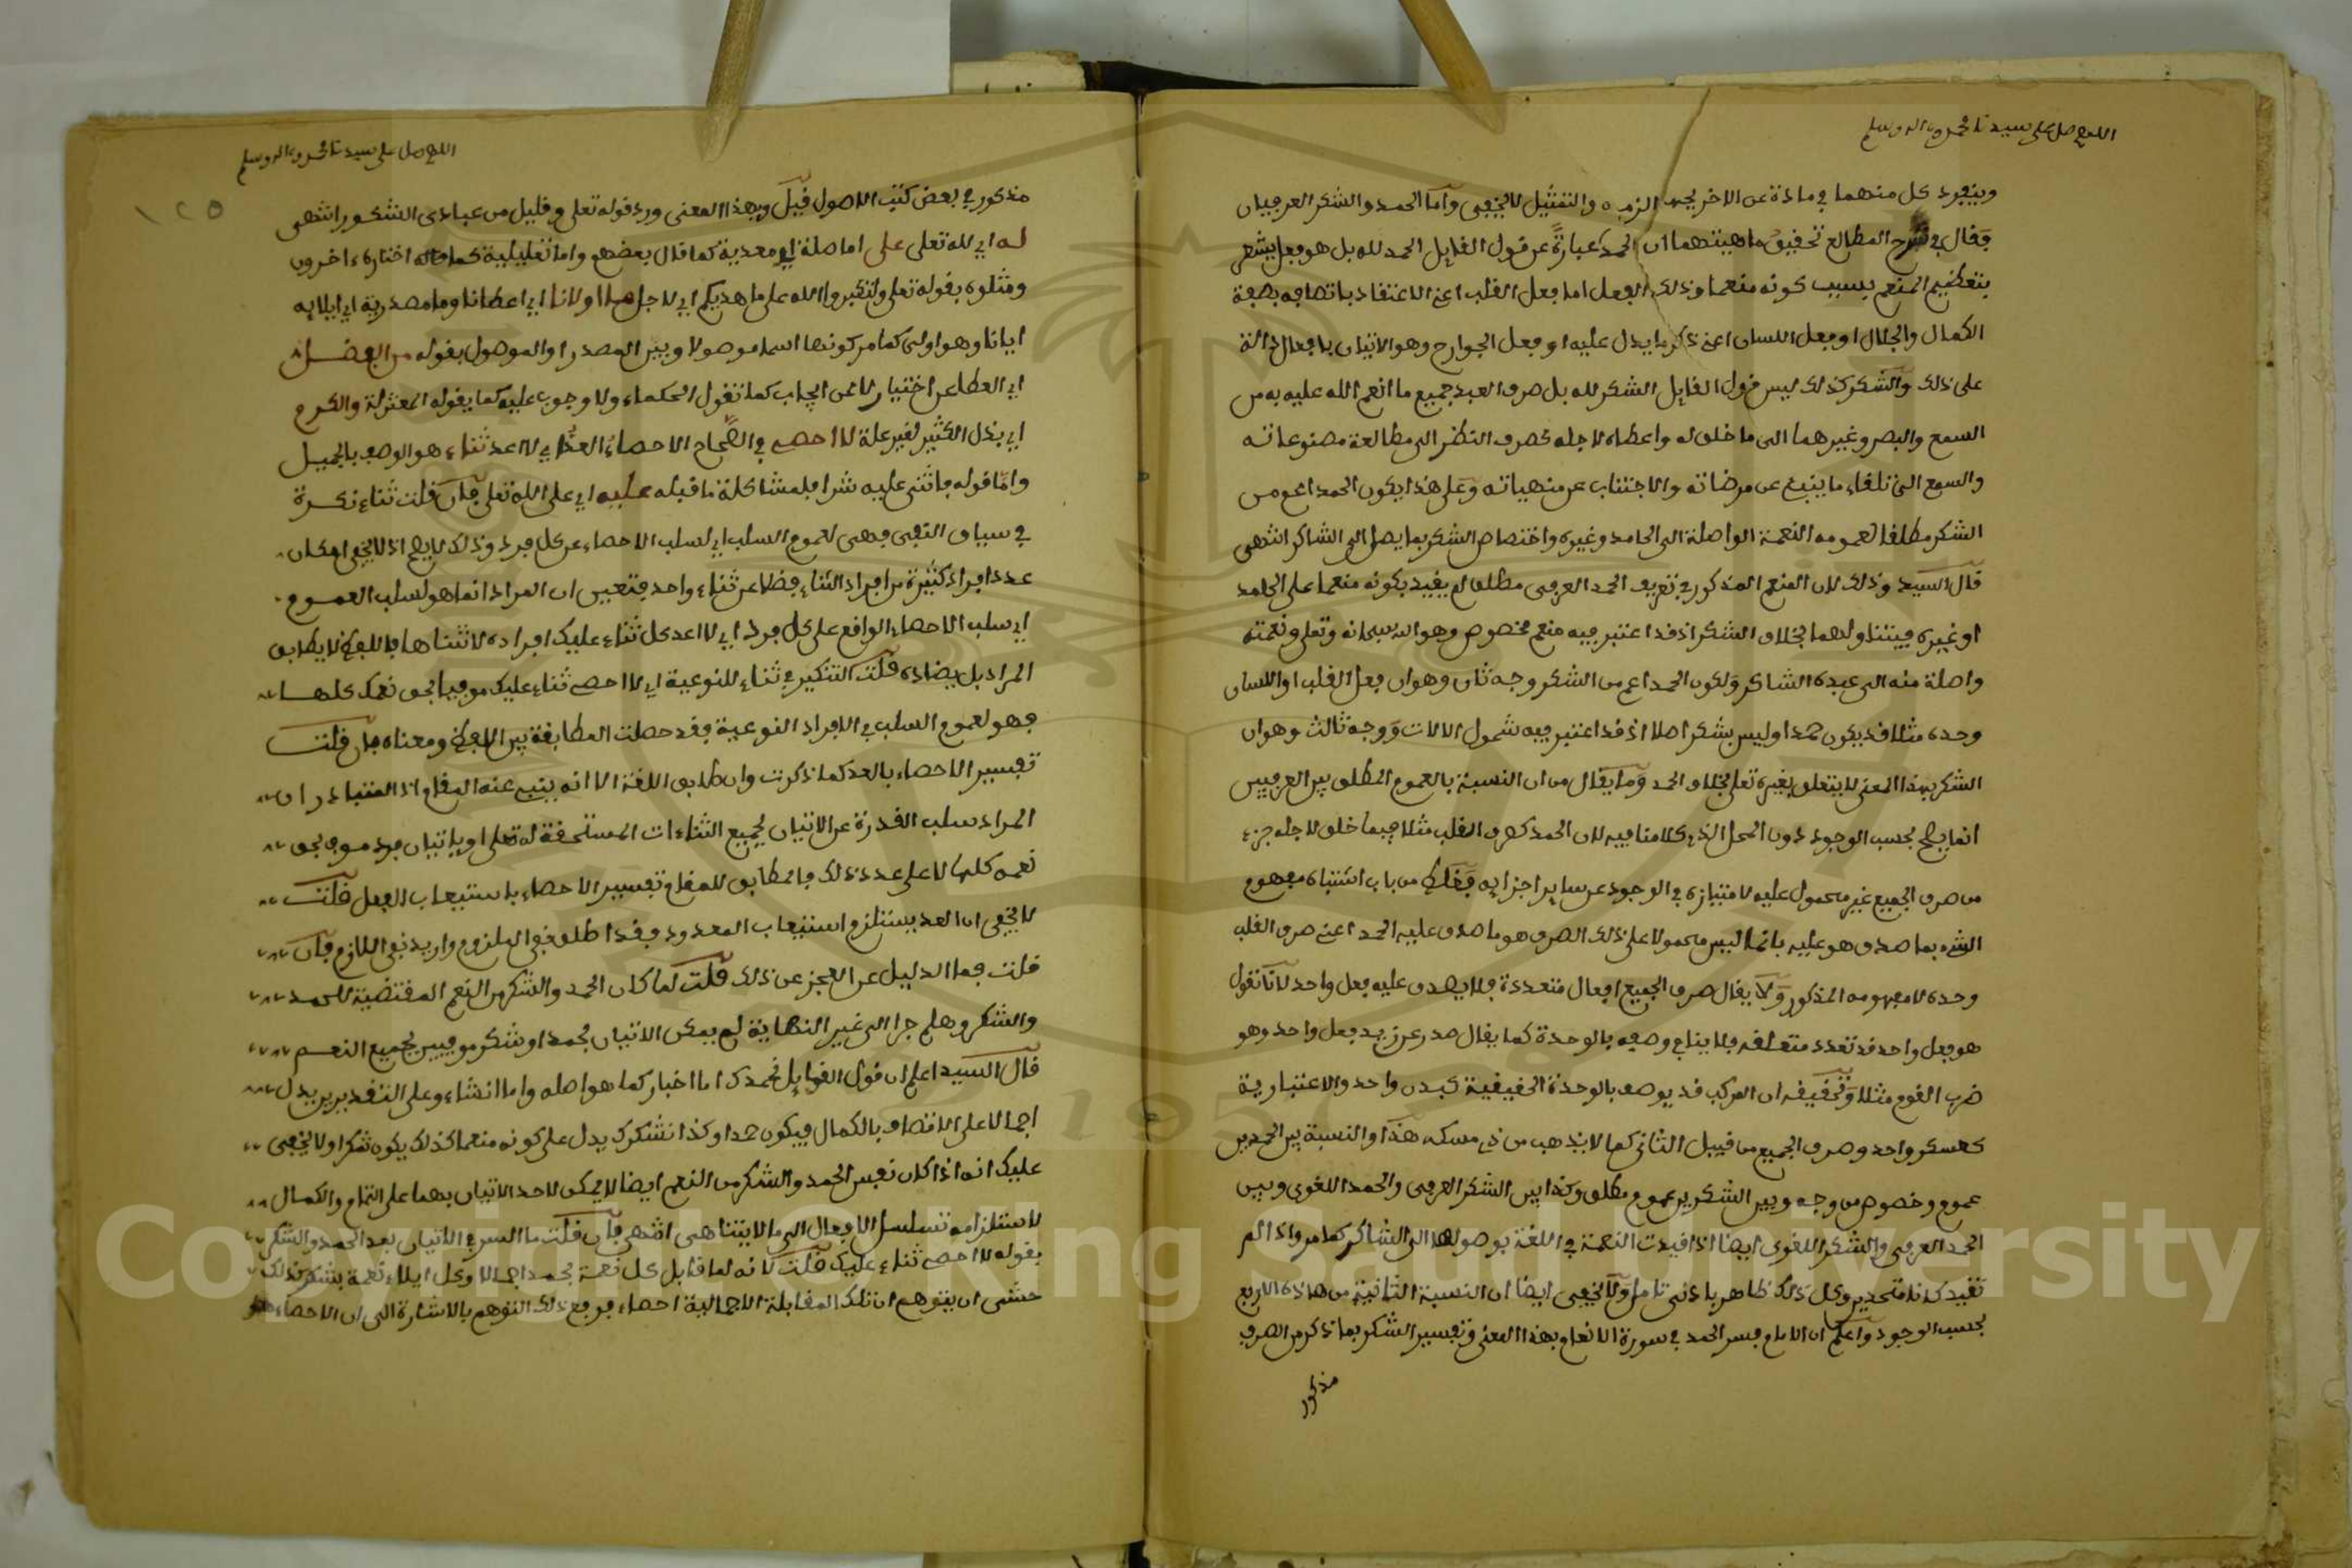 اللهم صل على سيدنا محمد وءاله وسلم
وينفرد كل منهما في مادة عن الاخر بجهة والتمثيل لا يخفى وأما الحمد والشكر العرفيان
فقال في شرح المطالع تحقيق ماهيتهما ان الحمد عبارة عن قول القايل الحمد لله بل هو فعل يشعر
بتعظيم المنعم بسبب كونه منعما وذلك الفعل اما فعل القلب اعني الاعتقاد باتصافه بصفة
الكمال والجلال او فعل اللسان اعني ذكر ما يدل عليه او فعل الجوارح وهو الاتيان بافعال دالة
على ذلك والشكر كذلك ليس قول القايل الشكر لله بل صرف العبد جميع ما انعم الله عليه به من
السمع والبصر وغيرهما الى ما خلق له واعطاه لاجله كصرف النظر الى مطالعة مصنوعاته
والسمع الى تلقاء ما ينبئ عن مرضاته والاجتناب عن منهياته وعلى هذا يكون الحمد اعم من
الشكر مطلقا لعمومه النعمة الواصلة الى الحامد وغيره واختصاص الشكر بما يصل الى الشاكر انتهى
قال السيد وذلك لان المنعم المذكور في تعريف الحمد العرفي مطلق لم يقيد بكونه منعما على الحامد
او غيره فيتناولهما بخلاف الشكر اذ قد اعتبر فيه منعم مخصوص وهو الله سبحانه وتعلى ونعمته
واصلة منه الى عبده الشاكر ولكون الحمد اعم من الشكر وجه ثان وهو ان فعل القلب او اللسان
وحده مثلا قد يكون حمدا وليس بشكر اصلا اذ قد اعتبر فيه شمول الالات ووجه ثالث وهو ان
الشكر بهذا المعنى لا يتعلق بغيره تعلى بخلاف الحمد وما يقال من ان النسبة بالعموم المطلق بين العرفيين
انما يصح بحسب الوجود دون الحمل الذي كلامنا فيه لان الحمد كصرف القلب مثلا فيما خلق لاجله جزء
من صرف الجميع غير محمول عليه لامتيازه في الوجود عن ساير اجزايه فغلط من باب اشتباه مفهوم
الشيء بما صدق هو عليه فان ما ليس محمولا على ذلك الصرف هو ما صدق عليه الحمد اعني صرف القلب
وحده لا مفهومه المذكور ولا يقال صرف الجميع افعال متعددة فلا يصدق عليه فعل واحد لانا نقول
هو فعل واحد قد تعدد متعلقه فلا ينافي وصفه بالوحدة كما يقال صدر عن زيد فعل واحد وهو
ضرب القوم مثلا وتحقيقه ان المركب قد يوصف بالوحدة الحقيقية كبدن واحد والاعتبارية
كعسكر واحد وصرف الجميع من قبيل الثاني كما لا يذهب من ذي مسكة هذا والنسبة بين الحمدين
عموم وخصوص من وجه وبين الشكرين عموم مطلق وكذا بين الشكر العرفي والحمد اللغوي وبين
الحمد العرفي والشكر اللغوي ايضا اذا قيدت النعمة في اللغة بوصولها الى الشاكر كما مر واذا لم
تقيد كانا متحدين وكل ذلك ظاهر بادنى تامل ولا يخفى ايضا ان النسبة الثانية من هاذه الاربع
بحسب الوجود واعلم ان الامام فسر الحمد في سورة الانعام بهذا المعنى وتفسير الشكر بما ذكر من الصرف
مذكور
اللهم صل على سيدنا محمد وءاله وسلم
١٢٥
مذكور في بعض كتب الاصول قيل وبهذا المعنى ورد قوله تعلى وقليل من عبادي الشكور انتهى
له اي لله تعلى على اما صلة اي معدية كما قال بعضهم واما تعليلية كما اختاره ءاخرون
ومثلوه بقوله تعلى ولتكبروا الله على ما هديكم اي لاجل اولانا اي اعطانا وما مصدرية اي ايلايه
ايانا وهو اولى كما مر كونها اسما موصولا وبين المصدر او الموصول بقوله من الفضل
اي العطاء عن اختيار لا عن ايجاب كما تقول الحكماء ولا وجوب عليه كما يقوله المعتزلة والكرم
اي بذل الكثير لغير علة لا احصي في الصحاح الاحصاء العد اي لا اعد ثناء هو الوصف بالجميل
واما قوله فاثنى عليه شرا فلمشاكلة ما قبله عليه اي على الله تعلى فان قلت ثناء نكرة
في سياق النفي فهي لعموم السلب اي لسلب الاحصاء عن كل فرد وذلك لا يصح اذ لا يخفى امكان
عدد افراد كثيرة من افراد الثناء فضلا عن ثناء واحد فتعين ان المراد انما هو لسلب العموم
اي سلب الاحصاء الواقع على كل فرد اي لا اعد كل ثناء عليك افراده لا تتناها فاللفظ لا يطابق
المراد بل يضاده قلت التنكير في ثناء للنوعية اي لا احصي ثناء عليك موفيا بحق نعمك كلها
فهو لعموم السلب في الافراد النوعية فقد حصلت المطابقة بين اللفظ ومعناه فان قلت
تفسير الاحصاء بالعد كما ذكرت وان طابق اللغة الا انه ينبو عنه المقام اذ المتبادر ان
المراد سلب القدرة عن الاتيان بجميع الثناءات المستحقة له تعلى او باتيان فرد موف بحق
نعمه كلها لا على عدد ذلك فالمطابق للمقام تفسير الاحصاء باستيعاب الفعل قلت
لا يخفى ان العد يستلزم استيعاب المعدود فقد اطلق نفي الملزوم واريد نفي اللازم فان
قلت فما الدليل عن العجز عن ذلك قلت لما كان الحمد والشكر من النعم المقتضية للحمد
والشكر وهلم جرا الى غير النهاية لم يمكن الاتيان بحمد او شكر موفيين بجميع النعم
قال السيد اعلم ان قول القايل نحمدك اما اخبار كما هو اصله واما انشاء وعلى التقديرين يدل
اجمالا على الاتصاف بالكمال فيكون حمدا وكذا نشكرك يدل على كونه منعما كذلك يكون شكرا ولا يخفى
عليك انه اذا كان نفس الحمد والشكر من النعم ايضا لا يمكن لاحد الاتيان بهما على التمام والكمال
لاستلزامه تسلسل الافعال الى ما لا يتناهى انتهى فان قلت ما السر في الاتيان بعد الحمد والشكر
بقوله لا احصي ثناء عليك قلت لانه لما قابل كل نعمة بحمد اجمالا وكل ايلاء نعمة بشكر كذلك
خشي ان يتوهم ان تلك المقابلة الاجمالية احصاء فرفع ذلك التوهم بالاشارة الى ان الاحصاء هو
Copyright © King Saud University
1957